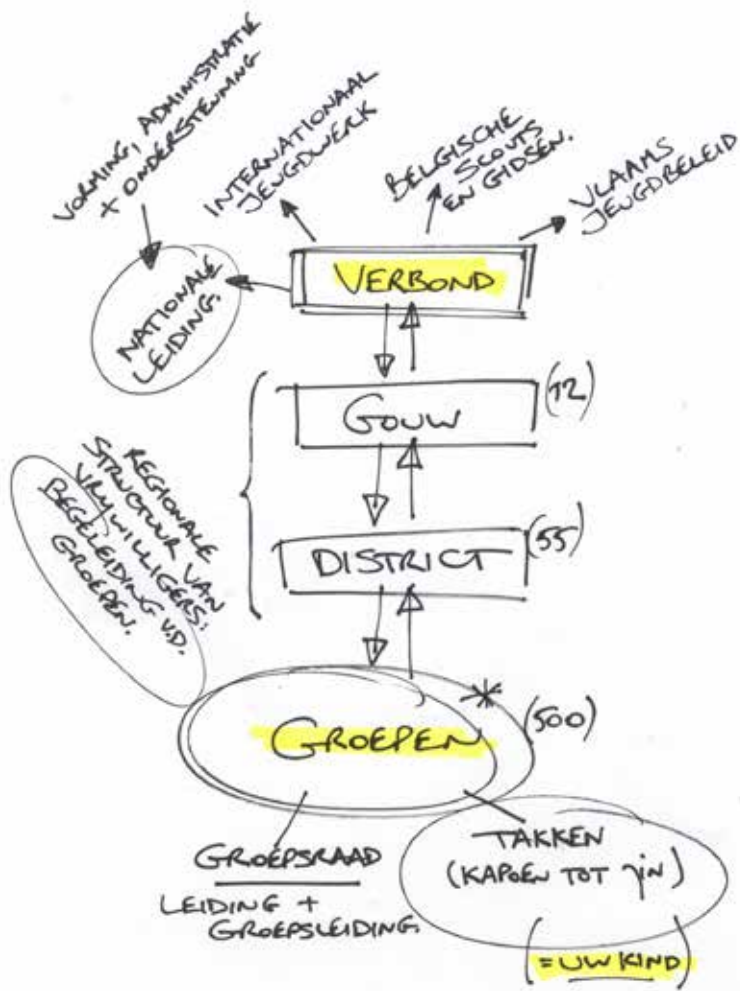 VORMING, ADMINISTRATIE
+ ONDERSTEUNING
INTERNATIONAAL
JEUGDWERK
BELGISCHE
SCOUTS
EN GIDSEN.
VLAAMS
JEUGDBELEID
VERBOND
NATIONALE
LEIDING.
GOUW
(12)
REGIONALE
STRUCTUUR VAN
VRIJWILLIGERS:
BEGELEIDING V.D.
GROEPEN.
DISTRICT
(55)
GROEPEN
*
(500)
GROEPSRAAD
LEIDING +
GROEPSLEIDING
TAKKEN
(KAPOEN TOT JIN)
(= UW KIND)